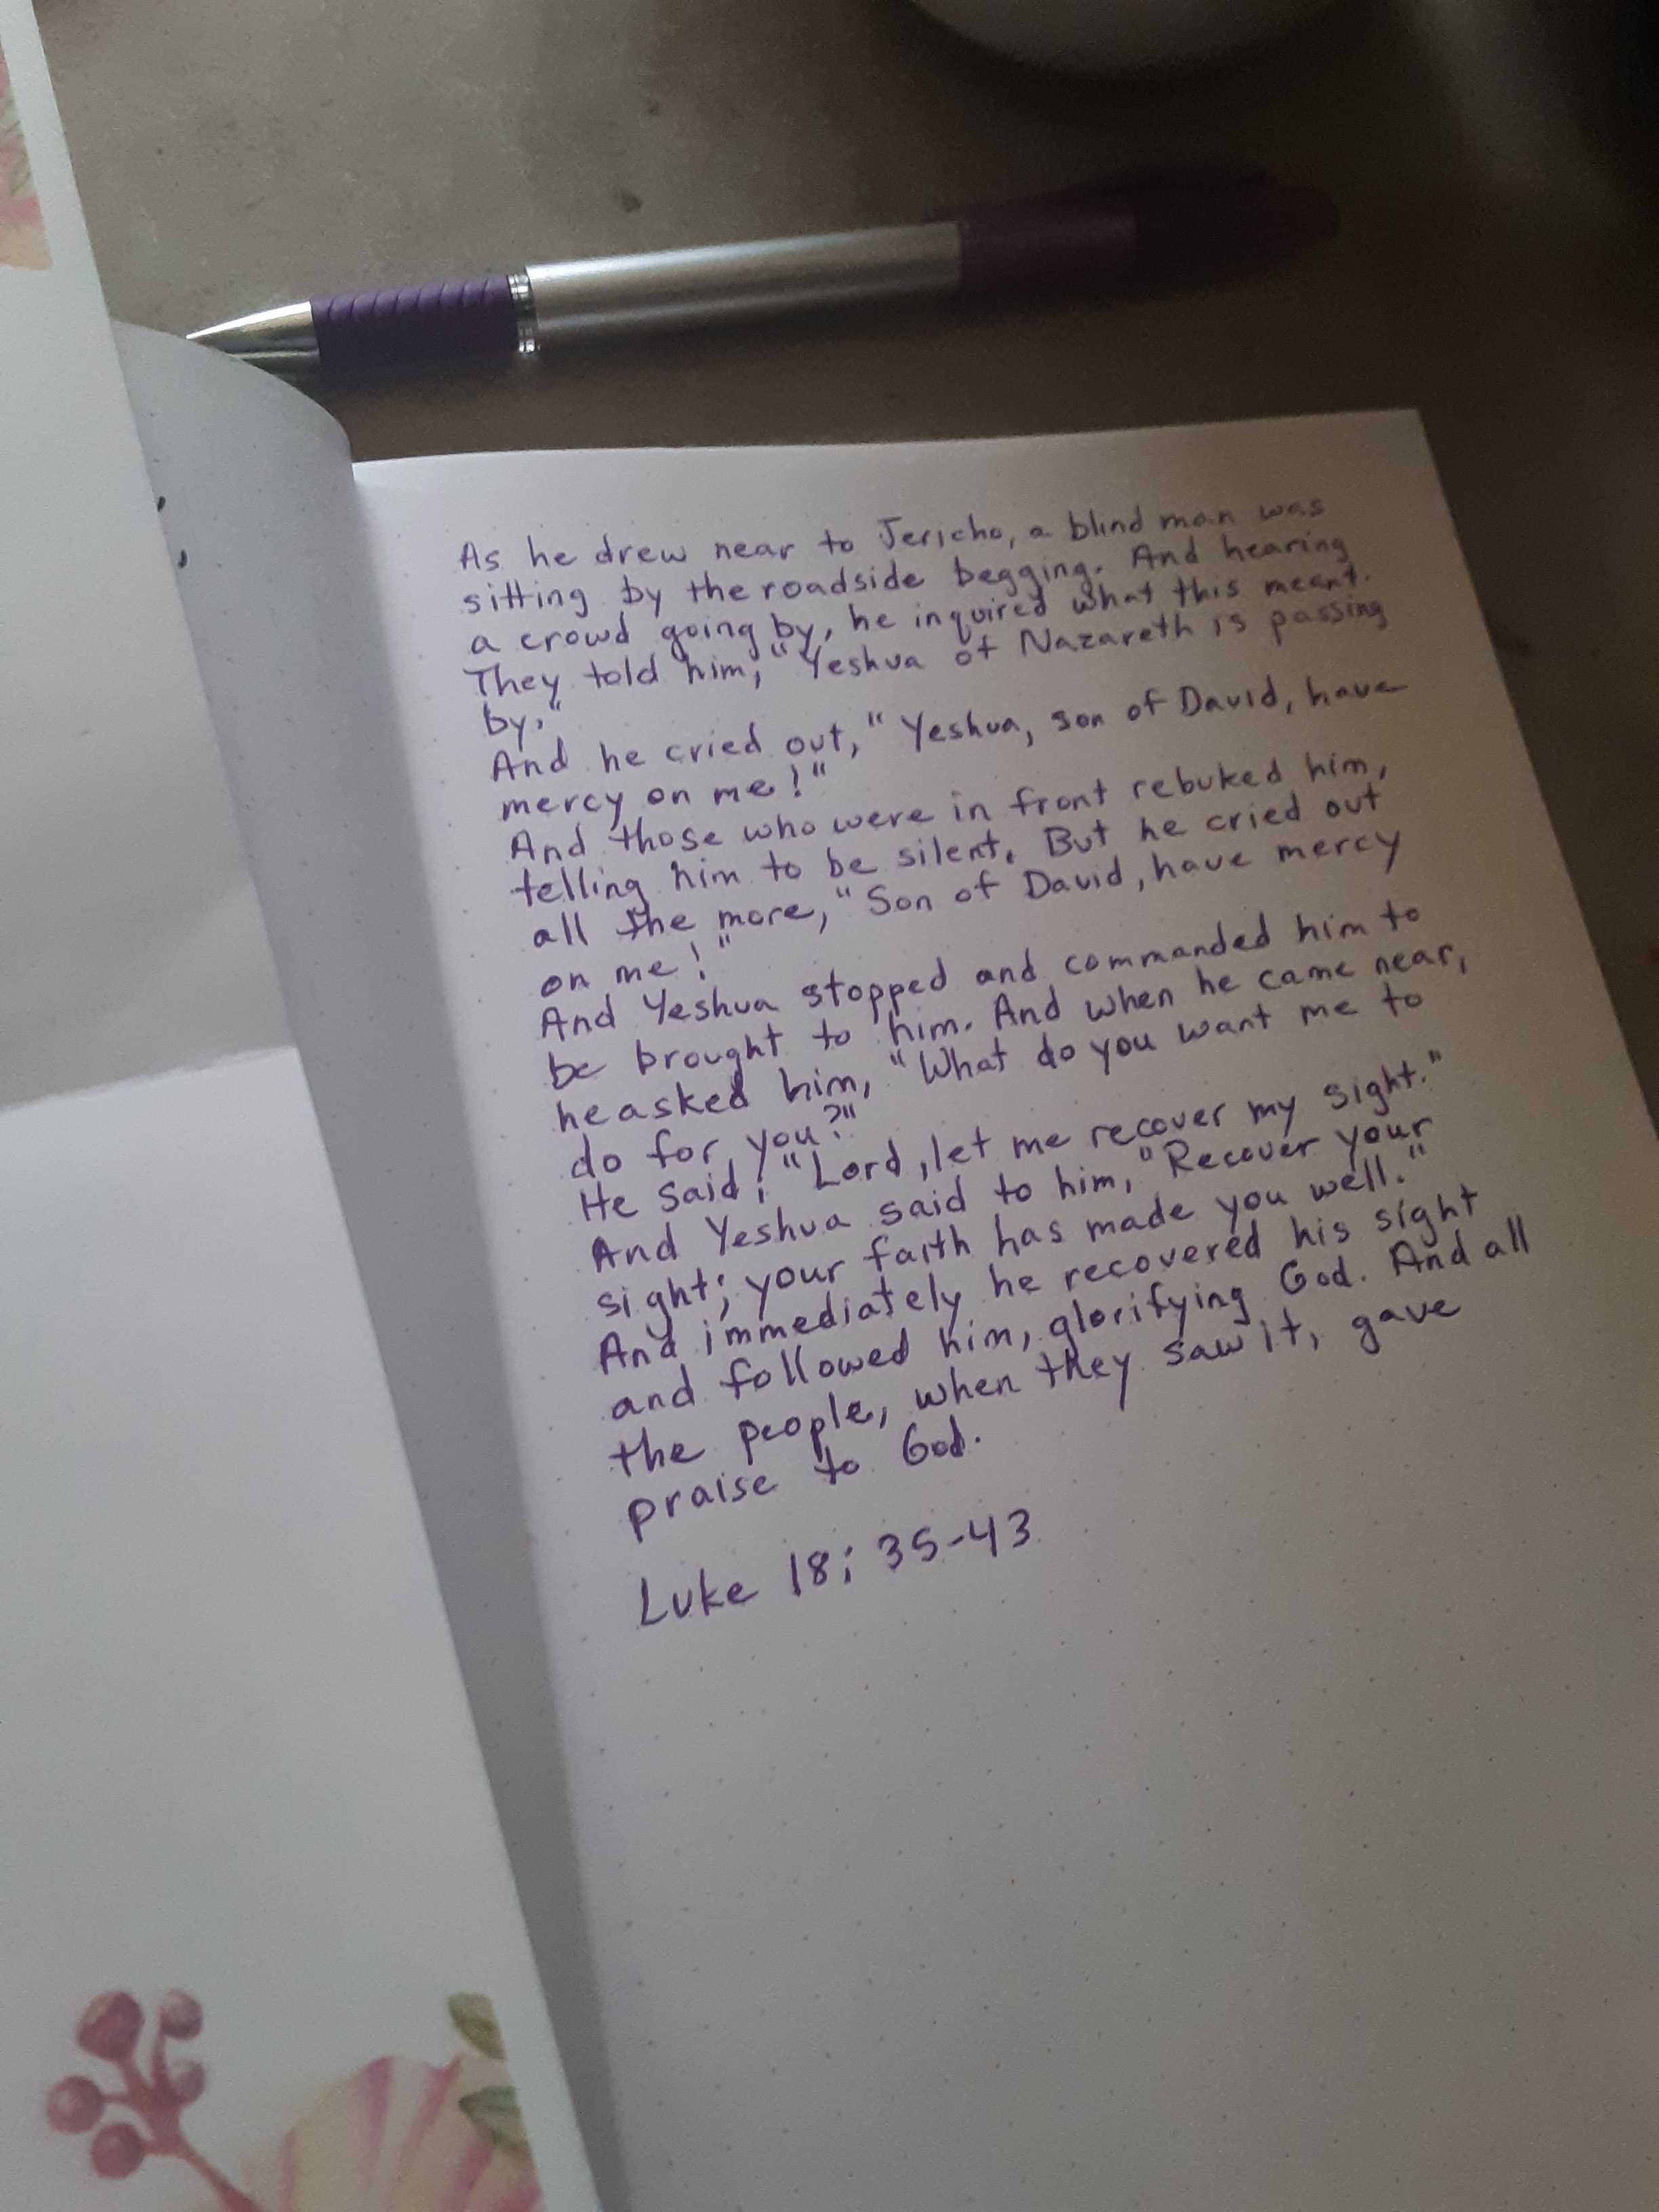 As he drew near to Jericho, a blind man was
sitting by the roadside begging. And hearing
a crowd going by, he inquired what this meant.
They told him, "Yeshua of Nazareth is passing
by."
And he cried out, "Yeshua, son of David, have
mercy on me!"
And those who were in front rebuked him,
telling him to be silent. But he cried out
all the more, "Son of David, have mercy
on me!"
And Yeshua stopped and commanded him to
be brought to him. And when he came near,
he asked him, "What do you want me to
do for you?"
He said, "Lord, let me recover my sight."
And Yeshua said to him, "Recover your
sight; your faith has made you well."
And immediately he recovered his sight
and followed him, glorifying God. And all
the people, when they saw it, gave
praise to God.
Luke 18; 35-43